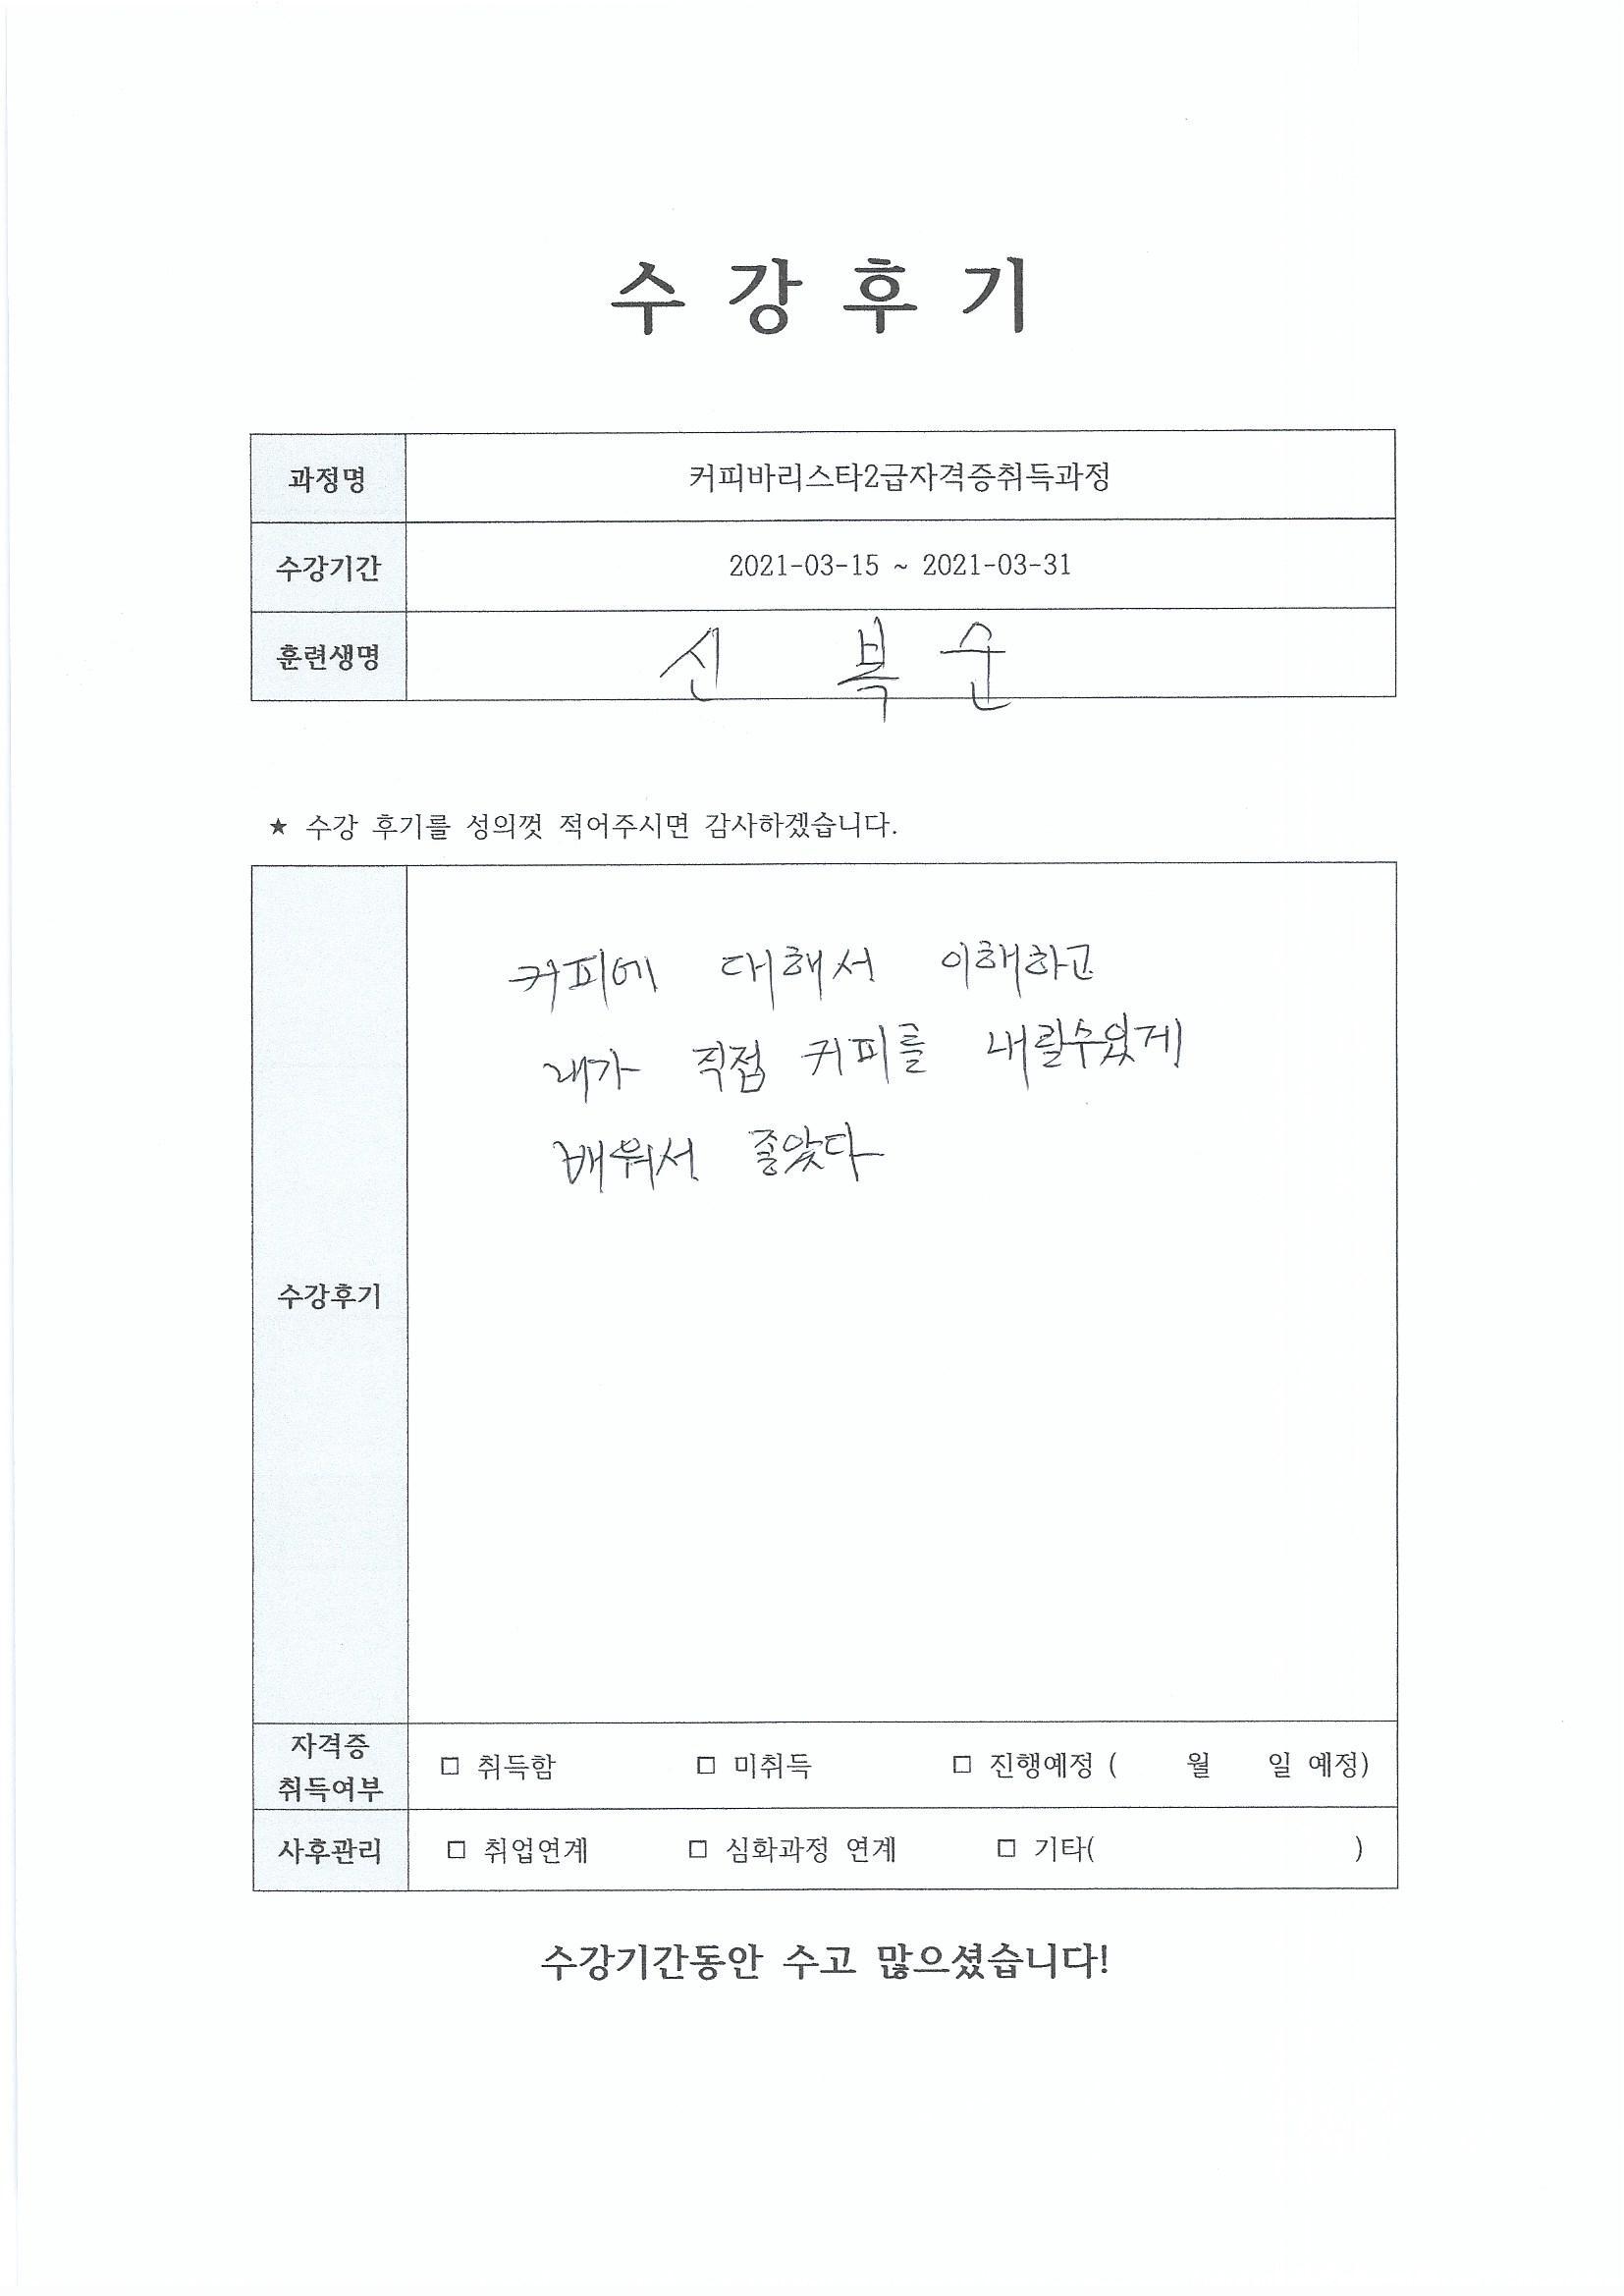 수 강 후 기
과정명 커피바리스타2급자격증취득과정
수강기간 2021-03-15 ~ 2021-03-31
훈련생명 신 복 순
★ 수강 후기를 성의껏 적어주시면 감사하겠습니다.
커피에 대해서 이해하고
내가 직접 커피를 내릴수있게
배워서 좋았다
수강후기
자격증
취득여부 □ 취득함 □ 미취득 □ 진행예정 ( 월 일 예정)
사후관리 □ 취업연계 □ 심화과정 연계 □ 기타( )
수강기간동안 수고 많으셨습니다!